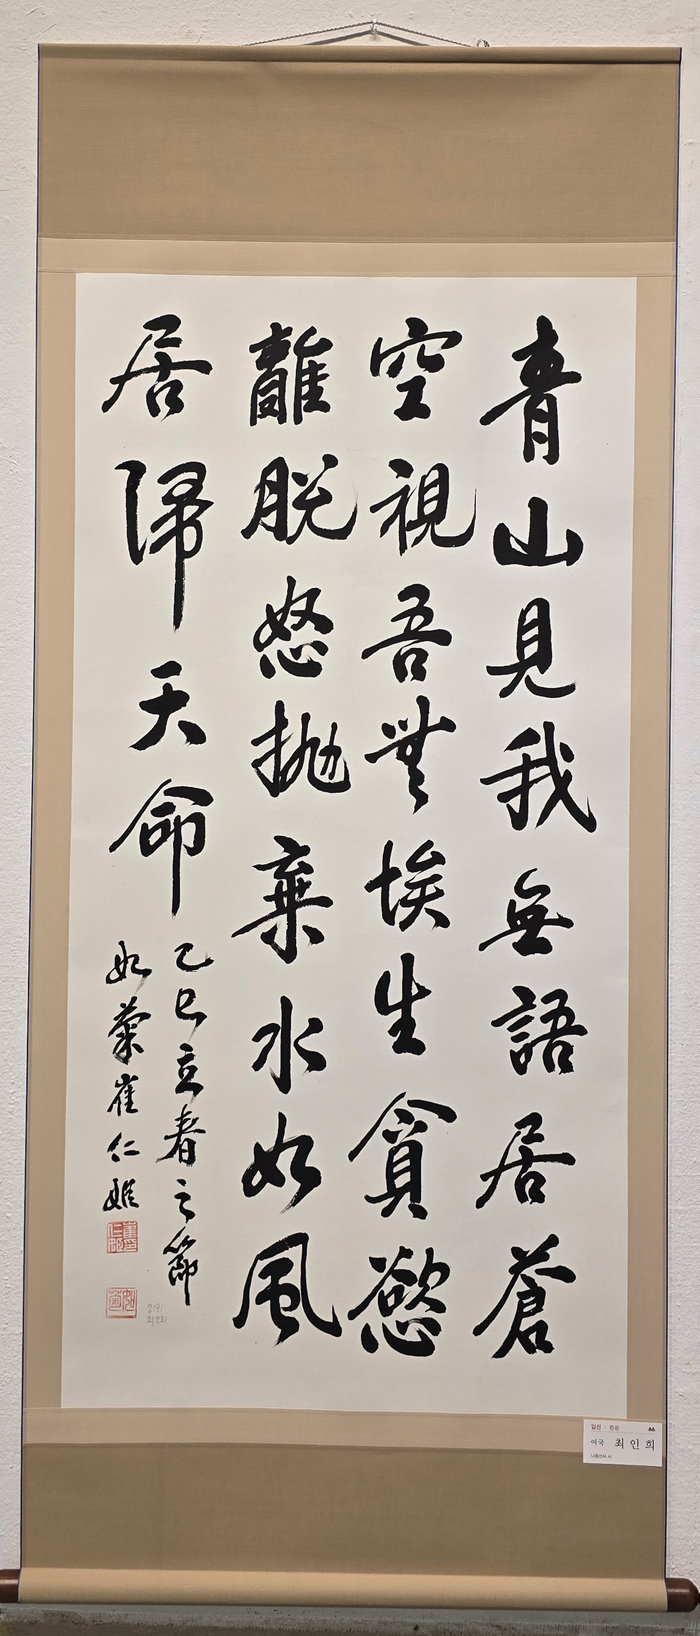 青山見我無語居蒼
空視吾無埃生貪慾
離脫怒抛棄水如風
居帰天命
乙巳立春之節
如菊崔仁姬
입선 한문
여국 최인희
나옹선사 시